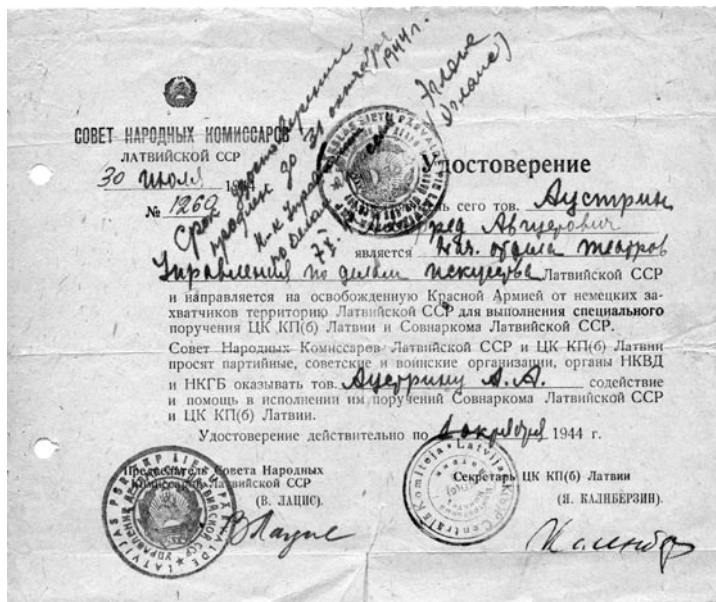 СОВЕТ НАРОДНЫХ КОМИССАРОВ
ЛАТВИЙСКОЙ ССР
30 июля 1944
№ 1269
Срок удостоверения
продлен до 31 октября 1944 г.
Н-к Управления
по делам
7/X
Удостоверение
сего тов. Аустрин
Август
является Нач. отдела театров
Управления по делам искусств Латвийской ССР
и направляется на освобожденную Красной Армией от немецких за-
хватчиков территорию Латвийской ССР для выполнения специального
поручения ЦК КП(б) Латвии и Совнаркома Латвийской ССР.
Совет Народных Комиссаров Латвийской ССР и ЦК КП(б) Латвии
просят партийные, советские и воинские организации, органы НКВД
и НКГБ оказывать тов. Аустрину А.А. содействие
и помощь в исполнении им поручений Совнаркома Латвийской ССР
и ЦК КП(б) Латвии.
Удостоверение действительно по 1 октября 1944 г.
Председатель Совета Народных
Комиссаров Латвийской ССР
(В. ЛАЦИС).
ВЛацис
Секретарь ЦК КП(б) Латвии
(Я. КАЛНБЕРЗИН).